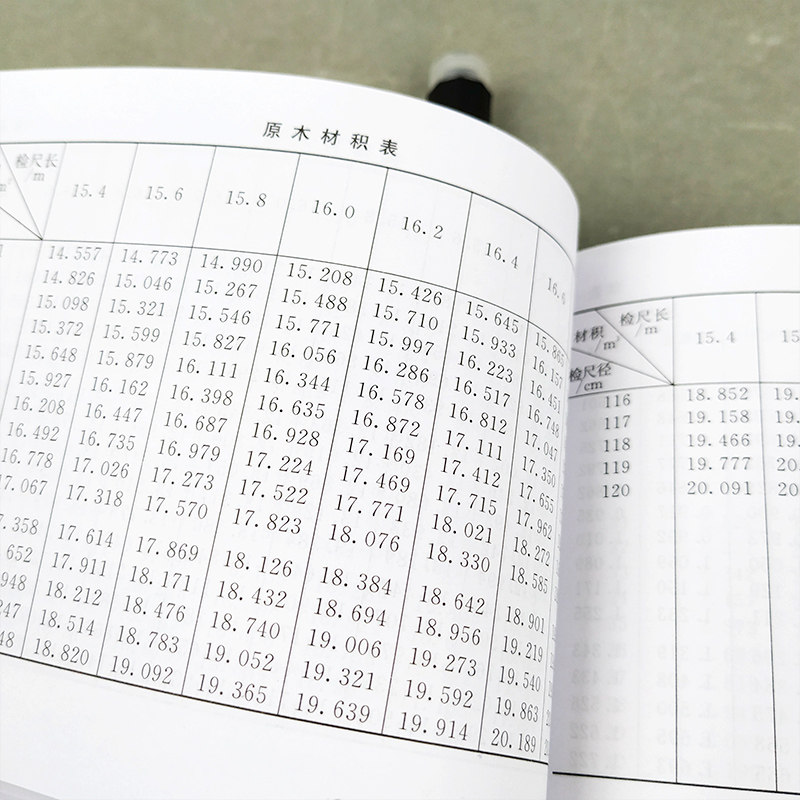 原木材积表
检尺长
/m
m³
15.4 15.6 15.8 16.0 16.2 16.4 16.6
14.557 14.773 14.990 15.208 15.426 15.645 15.865
14.826 15.046 15.267 15.488 15.710 15.933 16.157
15.098 15.321 15.546 15.771 15.997 16.223 16.451
15.372 15.599 15.827 16.056 16.286 16.517 16.748
15.648 15.879 16.111 16.344 16.578 16.812 17.047
15.927 16.162 16.398 16.635 16.872 17.111 17.350
16.208 16.447 16.687 16.928 17.169 17.412 17.655
16.492 16.735 16.979 17.224 17.469 17.715 17.962
16.778 17.026 17.273 17.522 17.771 18.021 18.272
17.067 17.318 17.570 17.823 18.076 18.330 18.585
7.358 17.614 17.869 18.126 18.384 18.642 18.901
652 17.911 18.171 18.432 18.694 18.956 19.219
948 18.212 18.476 18.740 19.006 19.273 19.540
247 18.514 18.783 19.052 19.321 19.592 19.863
48 18.820 19.092 19.365 19.639 19.914 20.189
检尺长
/m
材积
/m³
检尺径
/cm
15.4 15
116 18.852 19.
117 19.158 19.
118 19.466 19.
119 19.777 20
120 20.091 20